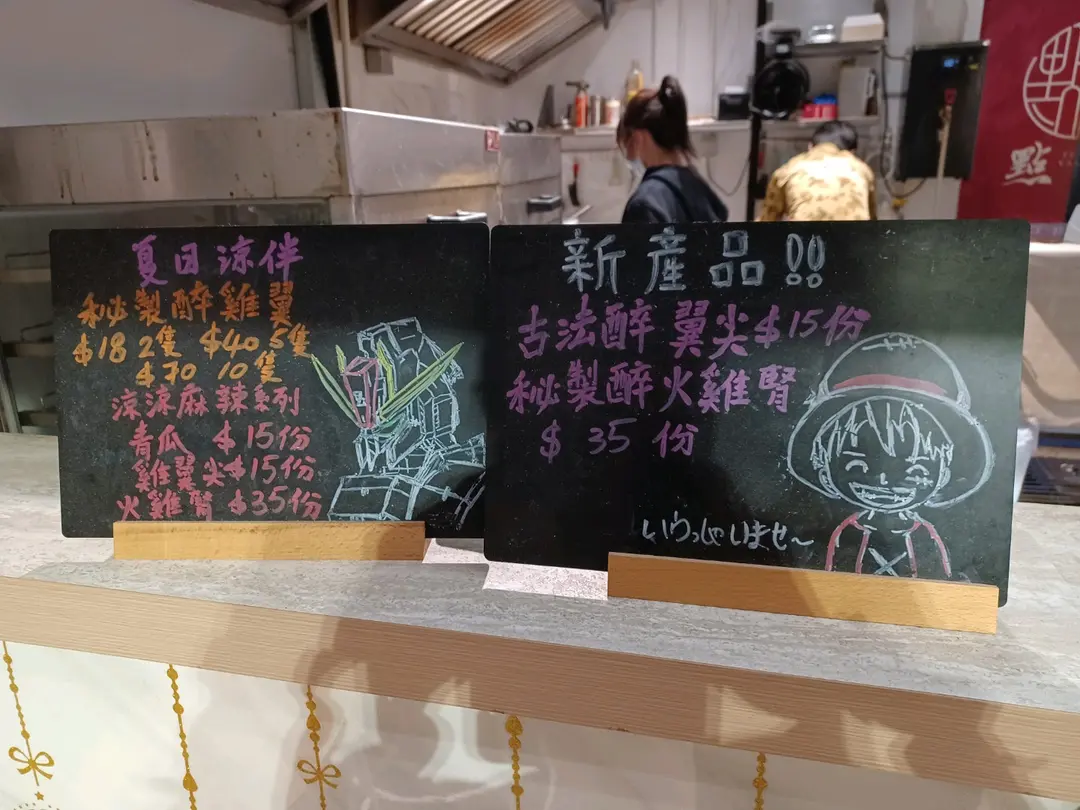 夏日涼伴
秘製醉雞翼
$18 2隻 $40 5隻
$70 10隻
涼涼麻辣系列
青瓜 $15份
雞翼尖$15份
火雞腎 $35份
新産品!!
古法醉翼尖$15份
秘製醉火雞腎
$35份
いらっしゃいませ~
點